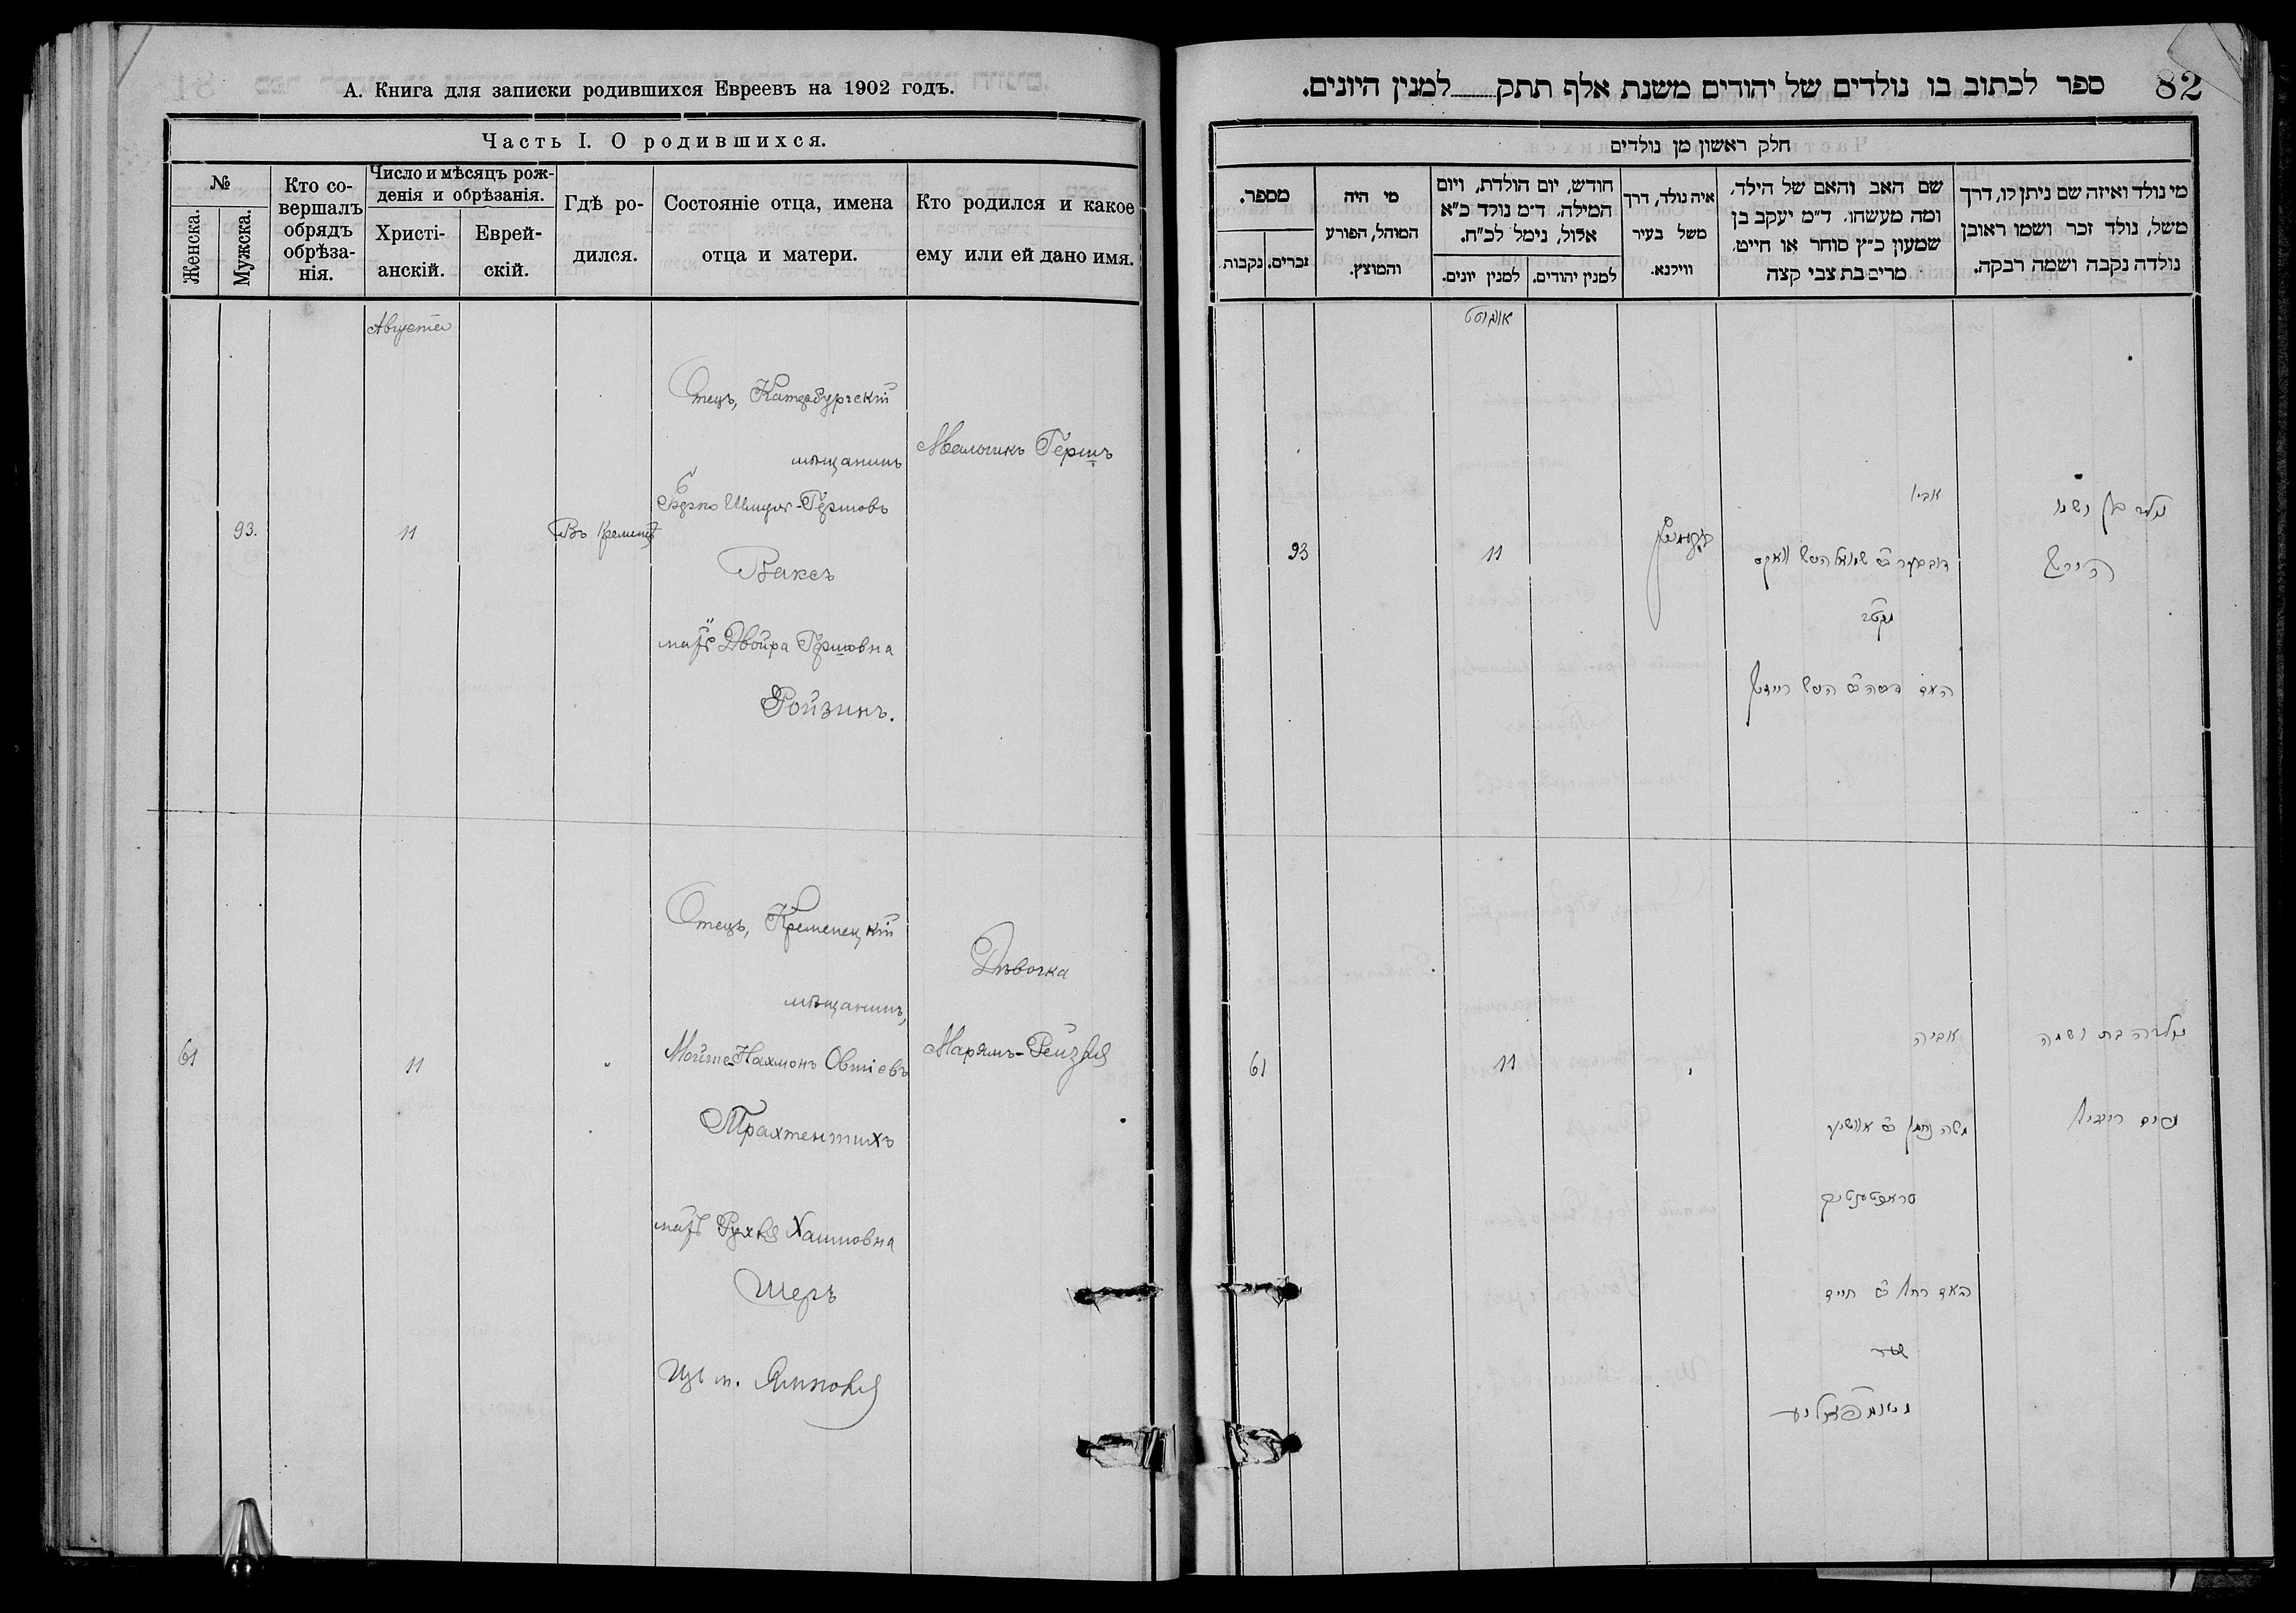 А. Книга для записки родившихся Евреевъ на 1902 годъ.
Часть I. О родившихся.
№
Женска.
Мужска.
Кто со-
вершалъ
обрядъ
обрѣза-
нія.
Число и мѣсяцъ рож-
денія и обрѣзанія.
Христі-
анскій.
Еврей-
скій.
Гдѣ ро-
дился.
Состояніе отца, имена
отца и матери.
Кто родился и какое
ему или ей дано имя.
Августа
93.
11
Въ Кременцѣ
Отецъ, Катербургскій
мѣщанинъ
Шмуль-Гершовъ
Ваксъ
мать Двойра Гершовна
Ройзинъ.
Мальчикъ Гершъ
61
11
Отецъ, Кременецкій
мѣщанинъ,
Мойше-Нахмонъ Овшіевъ
Трахтентихъ
мать Рухля Хаимовна
Шеръ
Изъ м. Ямполя
Дѣвочка
Марямъ-Рейзля
82
ספר לכתוב בו נולדים של יהודים משנת אלף תתק למנין היונים.
חלק ראשון מן נולדים
מי נולד ואיזה שם ניתן לו, דרך
משל, נולד זכר ושמו ראובן
נולדה נקבה ושמה רבקה.
שם האב והאם של הילד,
ומה מעשהו, ד״מ יעקב בן
שמעון כ״ץ סוחר או חייט,
מרים בת צבי קצה
איה נולד, דרך
משל בעיר
ווילנא.
חודש, יום הולדת, ויום
המילה, ד״מ נולד כ״א
אלול, נימל לכ״ח.
למנין יהודים.
למנין יונים.
מי היה
המוהל, הפורע
והמוצץ.
מספר.
זכרים.
נקבות.
אווגוסט
נולד בן ושמו
הירש
אביו
שמואל הירש וואקס
האם
93
11
נולדה בת ושמה
מרים רייזל
אביה
משה נחמן
טראכטענטיך
האם רחל חיים
שער
61
11